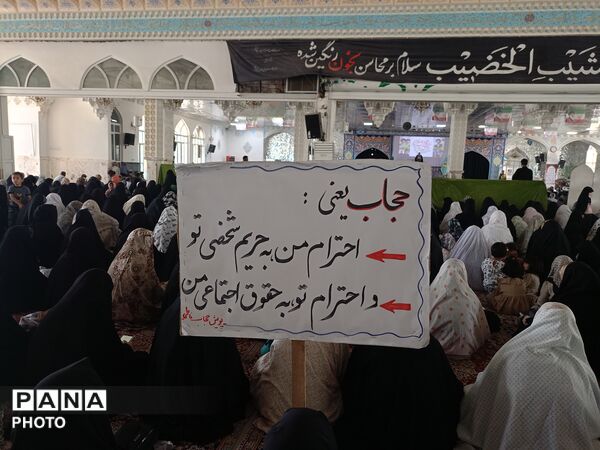 شَیْبِ الْخَضیْب سلام بر محاسن بخون رنگین شده
حجاب یعنی :
احترام من به حریم شخصی تو
و احترام تو به حقوق اجتماعی من
PANA
PHOTO